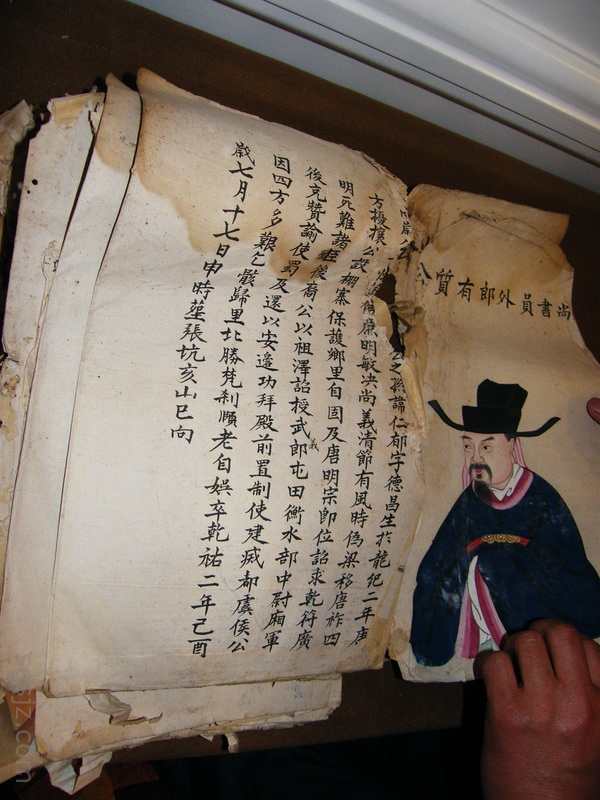 尚書員外郎有質公
公之孫諱仁郁字德昌生於龍紀二年庚
廉明敏决尚義清節有風時偽梁移唐祚四
方擾攘公設柵寨保護鄉里自固及唐明宗即位詔求乾符廣
明死難諸臣後裔公以祖澤詔授武義郎屯田衡水部中尉廂軍
後充贊諭使蜀及還以安邊功拜殿前置制使建威都虞侯公
因四方多艱乞骸歸里北勝梵刹順老自娛卒乾祐二年己酉
歲七月十七日申時葬張坑亥山巳向